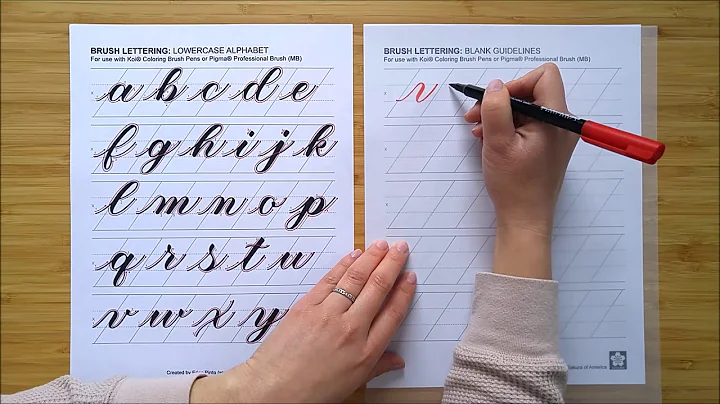 BRUSH LETTERING: LOWERCASE ALPHABET
For use with Koi® Coloring Brush Pens or Pigma® Professional Brush (MB)
a b c d e
f g h i j k
l m n o p
q r s t u
v w x y
Created by
BRUSH LETTERING: BLANK GUIDELINES
For use with Koi® Coloring Brush Pens or Pigma® Professional Brush (MB)
v
of America